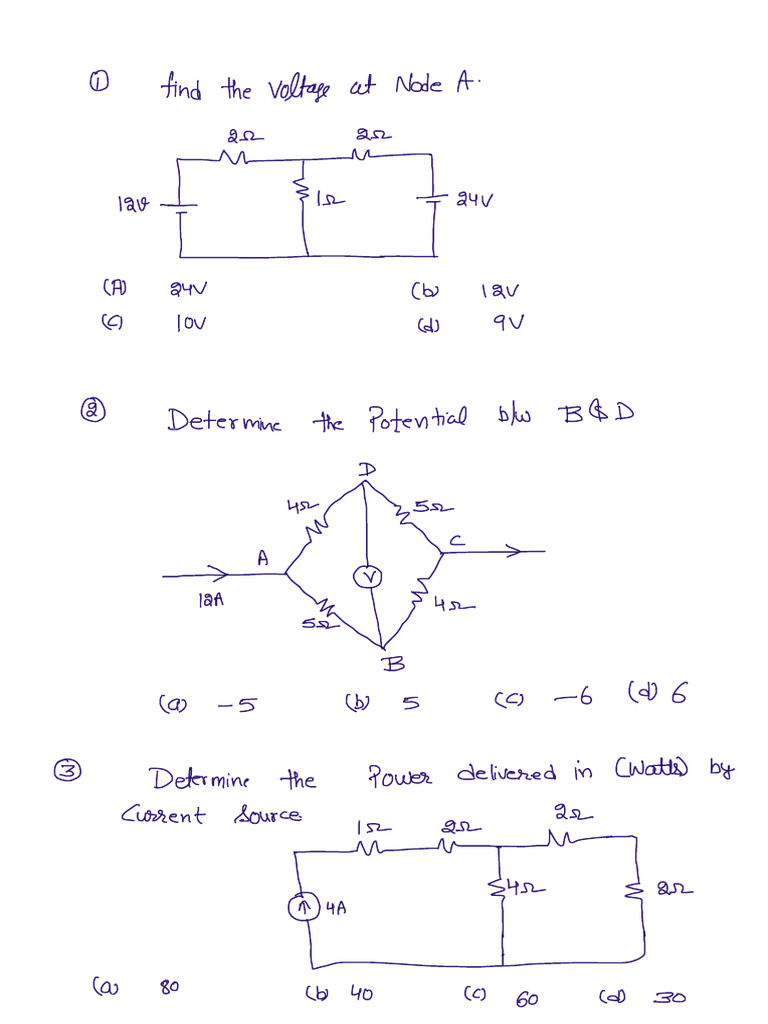 ① find the voltage at Node A.
2Ω 2Ω
12V 1Ω 24V
(A) 24V (b) 12V
(C) 10V (d) 9V
② Determine the Potential b/w B & D
D
4Ω 5Ω
A C
V
12A 5Ω 4Ω
B
(a) -5 (b) 5 (c) -6 (d) 6
③ Determine the Power delivered in (Watts) by
Current Source.
1Ω 2Ω 2Ω
4A 4Ω 2Ω
(a) 80 (b) 40 (c) 60 (d) 30